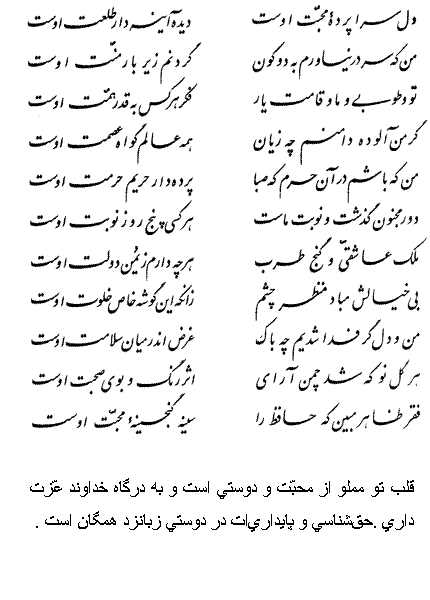 دل سراپردهٔ محبّت اوست دیده آینه دار طلعت اوست
من که سر درنیاورم به دو کون گردنم زیر بار منّت اوست
تو و طوبی و ما و قامت یار فکر هر کس به قدر همّت اوست
گر من آلوده دامنم چه زیان همه عالم گواه عصمت اوست
من که باشم در آن حرم که صبا پرده دار حریم حرمت اوست
دور مجنون گذشت و نوبت ماست هر کسی پنج روز نوبت اوست
ملک عاشقی و گنج طرب هر چه دارم ز یُمن دولت اوست
بی خیالش مباد منظر چشم زانکه این گوشه خاص خلوت اوست
من و دل گر فدا شدیم چه باک غرض اندر میان سلامت اوست
هر گل نو که شد چمن آرای اثر رنگ و بوی صحبت اوست
فقر ظاهر مبین که حافظ را سینه گنجینهٔ محبّت اوست
قلب تو مملو از محبّت و دوستي است و به درگاه خداوند عزّت
داري .حق‌شناسي و پايداري‌ات در دوستي زبانزد همگان است .